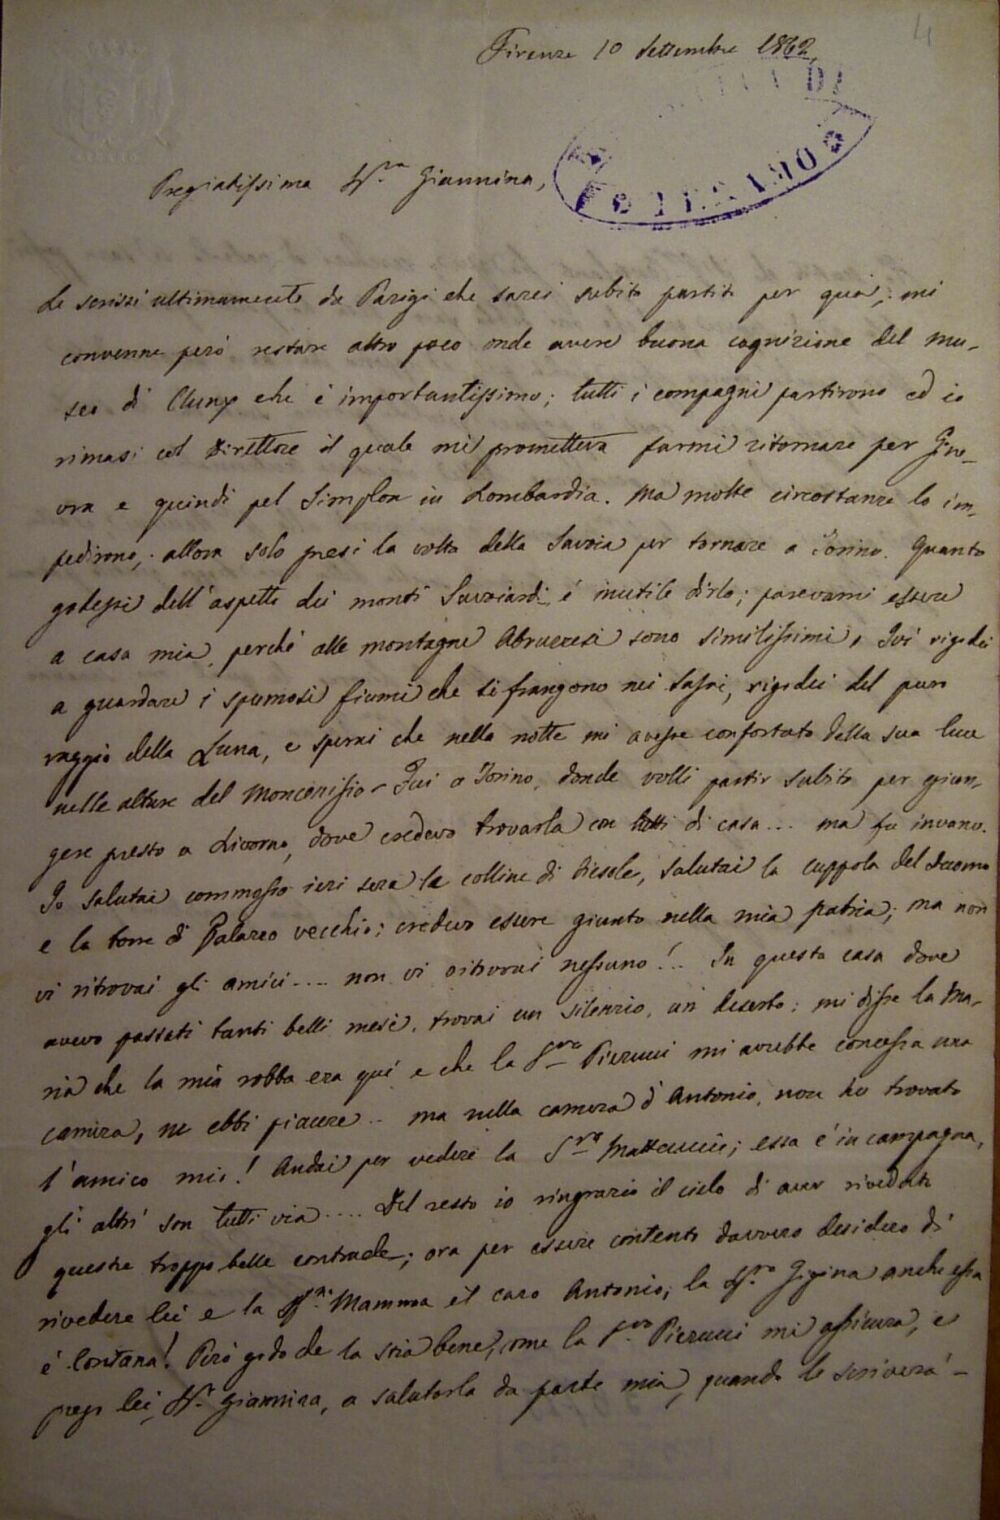 4
Firenze 10 Settembre 1862,
DI
TERAMO
Pregiatissima Sig.ra Giannina,
Le scrissi ultimamente da Parigi che sarei subito partito per quà, mi
convenne però restare altro poco onde avere buona cognizione del Mu-
seo di Cluny che è importantissimo; tutti i compagni partirono ed io
rimasi col Direttore il quale mi prometteva farmi ritornare per Gine-
vra e quindi pel Simplon in Lombardia. Ma molte circostanze lo im-
pedirono; allora solo presi la volta della Savoia per tornare a Torino. Quanto
godessi dell'aspetto dei monti Savoiardi è inutile dirlo; parevami essere
a casa mia, perchè alle montagne Abruzzesi sono similissimi, Ivi rigodei
a guardare i spumosi fiumi che si frangono nei sassi, rigodei del puro
raggio della Luna, e sperai che nella notte mi avesse confortato della sua luce
nelle alture del Moncenisio - Fui a Torino, donde volli partir subito per giun-
gere presto a Livorno, dove credevo trovarla con tutti di casa... ma fu invano.
Io salutai commosso ieri sera le colline di Fiesole, salutai la cuppola del Duomo
e la torre di Palazzo vecchio; credevo essere giunto nella mia patria; ma non
vi ritrovai gli amici.... non vi ritrovai nessuno!.. In questa casa dove
avevo passati tanti belli mesi, trovai un silenzio, un deserto; mi disse la Ma-
ria che la mia robba era quì e che la S.ra Pierucci mi avrebbe concessa una
camera, ne ebbi piacere... ma nella camera d'Antonio, non ho trovato
l'amico mio! Andai per vedere la S.ra Matteucci; essa è in campagna,
gli altri son tutti via.... Del resto io ringrazio il cielo di aver riveduto
queste troppo belle contrade; ora per essere contento davvero desidero di
rivedere lei e la Mamma e il caro Antonio; la Sig.ra Gigina anche essa
è lontana! Però godo che la stia bene, come la S.ra Pierucci mi assicura, e
prego lei, Sig.ra Giannina, a salutarla da parte mia, quando le scriverà -